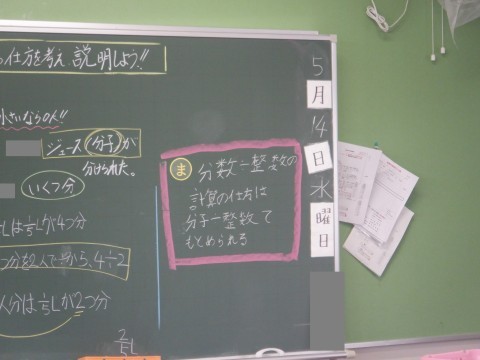 仕方を考え説明しよう!!
小さいなら0人!!
ジュース(分子)が
分けられた。
いくつ分
Lは1/5Lが4つ分
つ分を2人で から、4÷2
人分は1/5Lが2つ分
2/5L
ま 分数÷整数の
計算の仕方は
分子÷整数で
もとめられる
5
月
14
日
水
曜
日